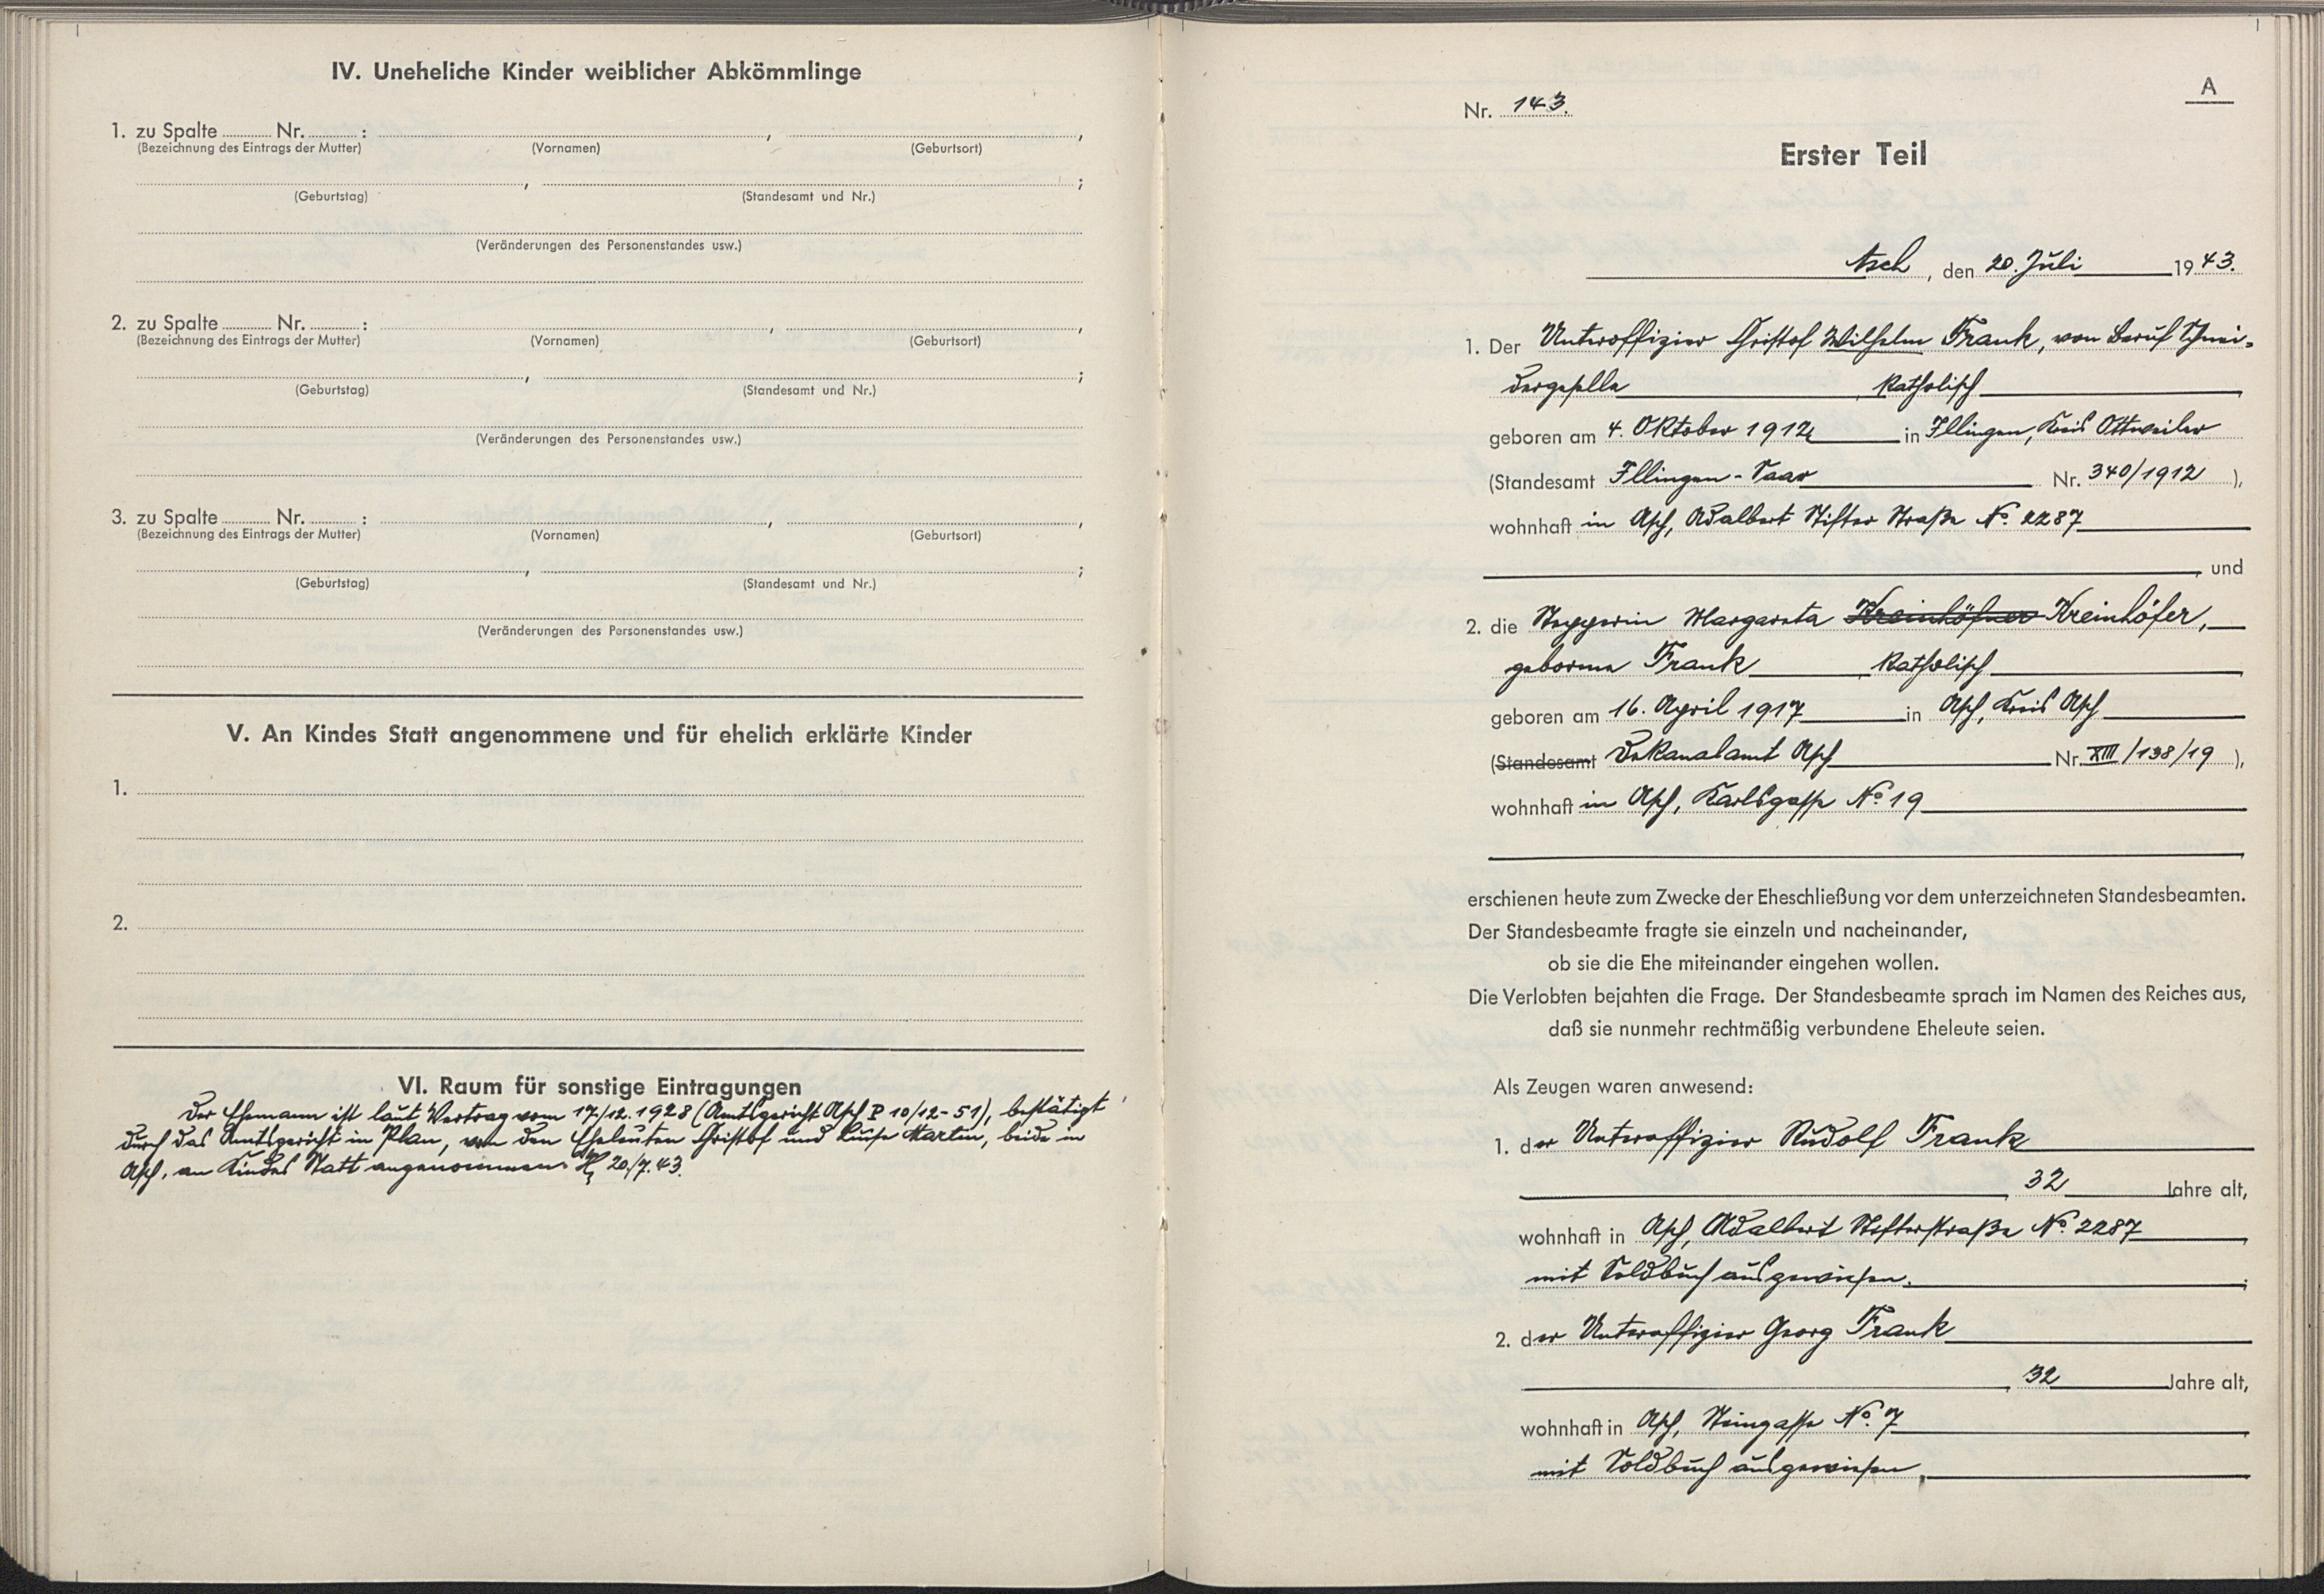 IV. Uneheliche Kinder weiblicher Abkömmlinge
1. zu Spalte ........ Nr. ........ : , ,
(Bezeichnung des Eintrags der Mutter) (Vornamen) (Geburtsort)
, ;
(Geburtstag) (Standesamt und Nr.)
(Veränderungen des Personenstandes usw.)
2. zu Spalte ........ Nr. ........ : , ,
(Bezeichnung des Eintrags der Mutter) (Vornamen) (Geburtsort)
, ;
(Geburtstag) (Standesamt und Nr.)
(Veränderungen des Personenstandes usw.)
3. zu Spalte ........ Nr. ........ : , ,
(Bezeichnung des Eintrags der Mutter) (Vornamen) (Geburtsort)
, ;
(Geburtstag) (Standesamt und Nr.)
(Veränderungen des Personenstandes usw.)
V. An Kindes Statt angenommene und für ehelich erklärte Kinder
1.
2.
VI. Raum für sonstige Eintragungen
Der Ehemann ist laut Vertrag vom 17./12.1928 (Amtsgericht Asch P 10/12-51), bestätigt
durch das Amtsgericht in Plan, von den Eheleuten Christof und Luise Martin, beide in
Asch, an Kindes Statt angenommen. 20./7.43.
A
Nr. 143.
Erster Teil
Asch, den 20. Juli 1943.
1. Der Unteroffizier Christof Wilhelm Frank, von Beruf Schnei-
dergeselle, katholisch
geboren am 4. Oktober 1912 in Illingen, Kreis Ottweiler
(Standesamt Illingen-Saar Nr. 340/1912 ),
wohnhaft in Asch, Adalbert Stifter Straße No. 2287
, und
2. die Stepperin Margareta Kreinhöfner Kreinhöfer,
geborene Frank, katholisch
geboren am 16. April 1917 in Asch, Kreis Asch
(Standesamt Dekanalamt Asch Nr. XIII/138/19 ),
wohnhaft in Asch, Karlsgasse No 19
erschienen heute zum Zwecke der Eheschließung vor dem unterzeichneten Standesbeamten.
Der Standesbeamte fragte sie einzeln und nacheinander,
ob sie die Ehe miteinander eingehen wollen.
Die Verlobten bejahten die Frage. Der Standesbeamte sprach im Namen des Reiches aus,
daß sie nunmehr rechtmäßig verbundene Eheleute seien.
Als Zeugen waren anwesend:
1. der Unteroffizier Rudolf Frank
, 32 Jahre alt,
wohnhaft in Asch, Adalbert Stifterstraße No. 2287,
mit Soldbuch ausgewiesen. ;
2. der Unteroffizier Georg Frank
, 32 Jahre alt,
wohnhaft in Asch, Steingasse No. 7,
mit Soldbuch ausgewiesen.